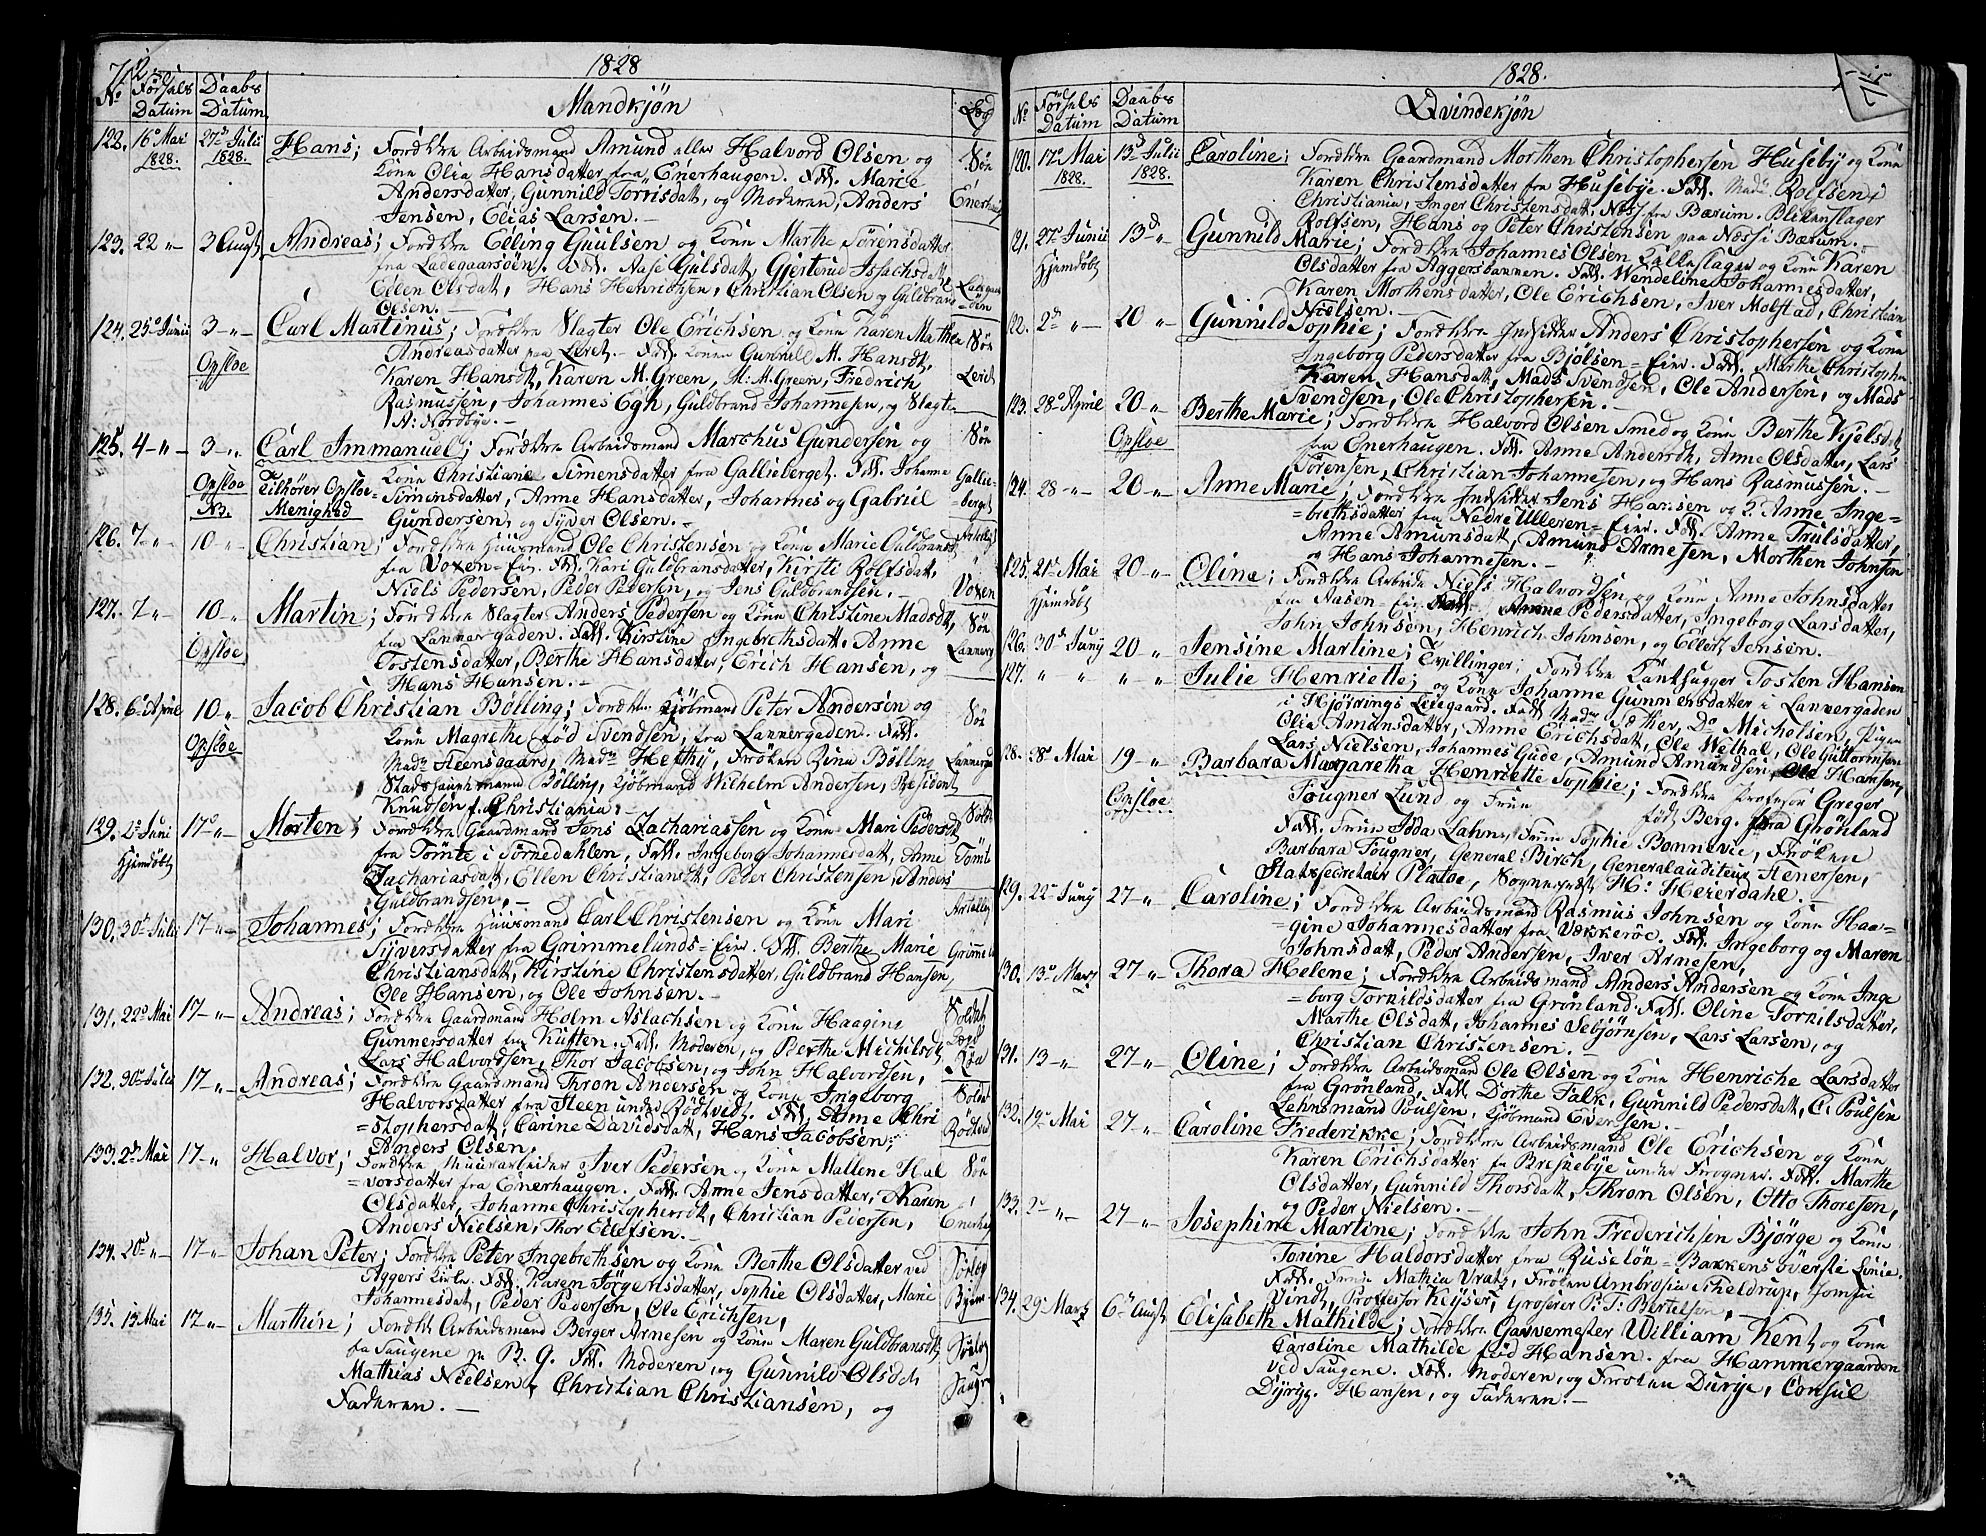 712
1828
No Fødsels Datum Daabs Datum Mandkjøn Lægd
122. 16de Mai 1828. 27de Julii 1828. Hans; Forældre Arbeidsmand Amund eller Halvord Olsen og Søn
Kone Olia Hansdatter fra Enerhaugen. Fadd. Marie
Andersdatter, Gunnild Torrisdatt, og Moderen, Anders Enerhaug
Jensen, Elias Larsen. —
123. 22 „ 3 Augst Andreas; Forældre Elling Guulsen og Kone Marthe Sørensdatter
fra Ladegaarsøen. Fadd. Aase Gulsdatt, Gjertrud Isachsdatt
Ellen Olsdatt, Hans Henrichsen, Christian Olsen og Guldbrand Ladegaars=øen
Olsen. —
124. 25de Junii 3 „ Carl Martinus; Forældre Slagter Ole Erichsen og Kone Karen Marthea Søn
Opsloe Andreasdatter paa Leret. — Fadd. Kone Gunnild M. Hansdt, Leret
Karen Hansdt, Karen M. Green, M: H. Green, Fredrich
Rasmussen, Johannes Egh, Guldbrand Johannesen, og Slagter
A: Nordbye. —
125. 4 „ 3 „ Carl Immanuel; Forældre Arbeidsmand Marchus Gundersen og Søn
Opsloe Kone Christiane Simensdatter fra Gallieberget. Fadd. Johanne Gallie=
Tilhører Opsloe Simensdatter, Anne Hansdatter, Johannes og Gabriel berget
N3. Menighed Gundersen, og Syver Olsen. —
126. 7 „ 10 „ Christian; Forældre Huusmand Ole Christensen og Kone Marie Gulbransdt
fra Voxen=Eier. Fadd. Kari Guldbransdatter, Kirsti Rolfsdatt,
Niels Pedersen, Peder Pedersen, og Jens Guldbrandsen. — Voxen
127. 7 „ 10 „ Martin; Forældre Slagter Anders Pedersen og Kone Christine Madsdt, Søn
Opsloe fra Lannergaden. Fadd. Kirstine Ingebrethsdatt. Anne Lannerg
Tostensdatter, Berthe Hansdatter, Erich Hansen, og
Hans Hansen. —
128. 6 Aprile 10 „ Jacob Christian Bölling; Forældre Kjöbmand Peter Andersen og Søn
Opsloe Kone Magrethe fød Svendsen, fra Lannergaden. Fadd.
Madm Steensgaard, Madm Hefthy, Frøken Rina Bölling Lannerga
Stadshauptmand Bölling, Kjöbmand Wilhelm Andersen, President
Knudsen fra Christiania.
129. 2de Juni 17de „ Morten; Forældre Gaardmand Jens Zachariassen og Kone Mari Pedersdt Soldat
Hjemdøbt fra Tömte i Sørnedahlen, Fadd. Ingeborg Johannesdatt, Anne Tömte
Zachariasdatt, Ellen Christiansdt, Peder Christensen, Anders
Guldbrandsen, —
130. 30de Julii 17 „ Johannes; Forældre Huusmand Carl Christensen og Kone Mari
Syversdatter fra Grimmelunds=Eier. Fadd. Berthe Marie Grimmelu
Christiansdatt, Kirstine Christensdatter, Guldbrand Hansen,
Ole Hansen, og Ole Johnsen. —
131. 22de Mai 17 „ Andreas; Forældre Gaardmand Holm Aslachsen og Kone Haagine Soldat
Gunnersdatter fra Kuften. Fadd. Moderen, og Berthe Michilsdt, Lægd
Lars Halvordsen, Thor Jacobsen, og John Halvordsen, Röa
132. 30de Julii 17 „ Andreas; Forældre Gaardmand Thron Andersen og Kone Ingeborg Soldat
Halvorsdatter fra Steen under Rödtvedt. Fadd. Anne Chri
=stophersdatt, Carine Davidsdatt, Hans Jacobsen, Rödtved
Anders Olsen,
133. 2de Mai 17 „ Halvor; Forældre Muurarbeider Iver Pedersen og Kone Mallene Hal Søn
=vorsdatter fra Enerhaugen. Fadd. Anne Jensdatter, Karen
Olsdatter, Johanne Christophersdt, Christian Pedersen,
Anders Nielsen, Thor Ellefsen. — Enerhaug
134. 20de „ 17 „ Johan Peter; Forældre Peter Ingebrethsen og Kone Berthe Olsdatter ved
Aggers Kirke. Fadd. Karen Jörgensdatter, Sophie Olsdatter, Marie
Johannesdatt, Peder Pedersen, Ole Erichsen,
135. 15 Mai 17 „ Marthin; Forældre Arbeidsmand Berger Arnesen og Kone Maren Guldbransdt,
fra Saugene pr B. G. Fadd. Moderen, og Gunnild Olsdt,
Mathias Nielsen, Christian Christiansen, og Sauge
Faderen. —
1828.
No Fødsels Datum Daabs Datum Qvindekjøn
120. 17de Mai 1828. 13de Julii 1828. Caroline; Forældre Gaardmand Morthen Christophersen Huseby og Kone
Karen Christensdatter fra Husebye. Fadd. Madm Rolfsen i
Christiania, Inger Christensdatt, Næss fra Bærum. Blikenslager
Rolfsen, Hans og Peter Christensen paa Næss i Bærum. —
21. 27de Junii 13de „ Gunnild Marie; Forældre Johannes Olsen Kalleslager og Kone Karen
Hjemdøbt Olsdatter fra Aggersbannen. Fadd. Wendeline Johannesdatter,
Karen Morthensdatter, Ole Erichsen, Iver Molstad, Christian
Nielsen. —
22. 2de „ 20 „ Gunnild Sophie; Forældre Indsidder Anders Christophersen og Kone
Ingeborg Pedersdatter fra Bjölsen=Eier. Fadd. Marthe Christophe
Karen Hansdatt, Mads Svendsen, Ole Andersen, og Mads
Svendsen, Ole Christophersen. —
123. 28de Aprile 20 „ Berthe Marie; Forældre Halvord Olsen Smed og Kone Berthe Kjelsdt,
Opsloe fra Enerhaugen. Fadd. Anne Andersdt, Anne Olsdatter, Lars
Sørensen, Christian Johannesen, og Hans Rasmussen. —
124. 28 „ 20 „ Anne Marie; Forældre Indsidder Jens Hansen og K. Anne Inge=
=brethsdatter fra Nedre Ulleren=Eier. Fadd. Anne Trulsdatter,
Anne Amunsdatt, Amund Arnesen, Morthen Johnsen
og Hans Johannesen. —
125. 21de Mai 20 „ Oline; Forældre Arbeider Niels Halvordsen og Kone Anne Johnsdatter
Hjemdøbt fra Aasen=Eier. Fadd. Anne Pedersdatter, Ingeborg Larsdatter,
John Johnsen, Henrich Johnsen, og Ellert Jensen.
126. 30de Juny 20 „ Jensine Martine; Tvillinger; Forældre Tosten Hansen
127. „ „ „ „ Julie Henriette; og Kone Johanne Gunnersdatter i Lannergaden
i Hjörrings Leiegaard. Fadd. Madm Sæther, Do Michelsen, Pigen
Olia Amunsdatter, Anne Erichsdatt, Ole Wethal, Ole Guttormsen
Lars Nielsen, Johannes Gude, Amund Amundsen, Ole Hansen,
28. 28de Mai 19 „ Barbara Margaretha Henriette Sophie; Forældre Professor Greger
Opsloe Fougner Lund og Frue fød Berg. fra Grönland
Fadd. Frue Idda Lahn, Frue Sophie Bonnevie, Frøken
Barbara Fougner, General Birch, Generalauditeur Stenersen,
Statssecretair Platoe, Sognepræst H: Heierdahl. —
129. 22de Juny 27 „ Caroline; Forældre Arbeidsmand Rasmus Johnsen og Kone Haa=
=gine Johannesdatter fra Vækkerøe. Fadd. Ingeborg og Maren
Johnsdatt, Peder Andersen, Iver Arnesen,
130. 13de Marz 27 „ Thora Helene; Forældre Arbeidsmand Anders Andersen og Kone Inge
=borg Tornildsdatter fra Grönland. Fadd. Oline Tornilsdatter,
Marthe Olsdatt, Johannes Sebjörnsen, Lars Larsen, og
Christian Christensen. —
131. 13 „ 27 „ Oline; Forældre Arbeidsmand Ole Olsen og Kone Henriche Larsdatter
fra Grönland, Fadd. Dorthe Falk, Gunnild Pedersdatt, C. Poulsen
Lehnsmand Poulsen, Kjöbmand Evensen.
132. 19de Mai 27 „ Caroline Frederikke; Forældre Arbeidsmand Ole Erichsen og Kone
Karen Erichsdatter fra Breskebye under Frogner. Fadd. Marthe
Olsdatter, Gunnild Thorsdatt, Thron Olsen, Otto Thoresen,
og Peder Nielsen. —
133. 2de „ 27 „ Josephine Martine; Forældre John Frederichsen Bjørge og Kone
Torine Haldorsdatter fra Ruseløn=Bakkens øverste Linie.
Fadd. Frue Mathia Vratz, Frøken Ambrosia Theldrup, Jomfru
Vindt, Professor Keyser, Grosserer P: J: Bertelsen, —
134. 29de Marz 6te Augst Elisabeth Mathilde; Forældre Garvemester William Kent og Kone
Caroline Mathilde fød Hansen. fra Hammergaarden
ved Saugene. Fadd. Moderen, og Frøken Durye, Consul
Hansen, og Faderen. —